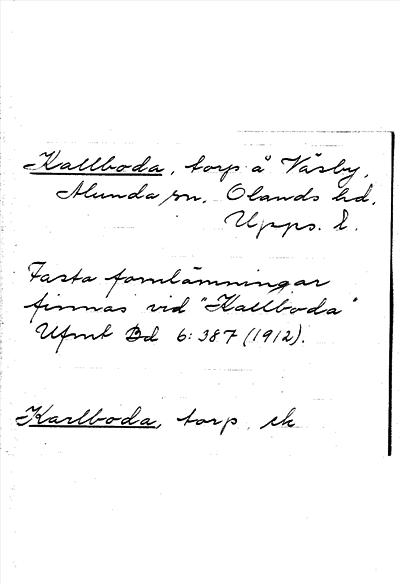 Kallboda, torp å Väsby,
Alunda sn. Olands hd.
Upps. l.
Fasta fornlämningar
finnas vid "Kallboda"
Ufmt Bd 6:387 (1912).
Karlboda, torp, ek